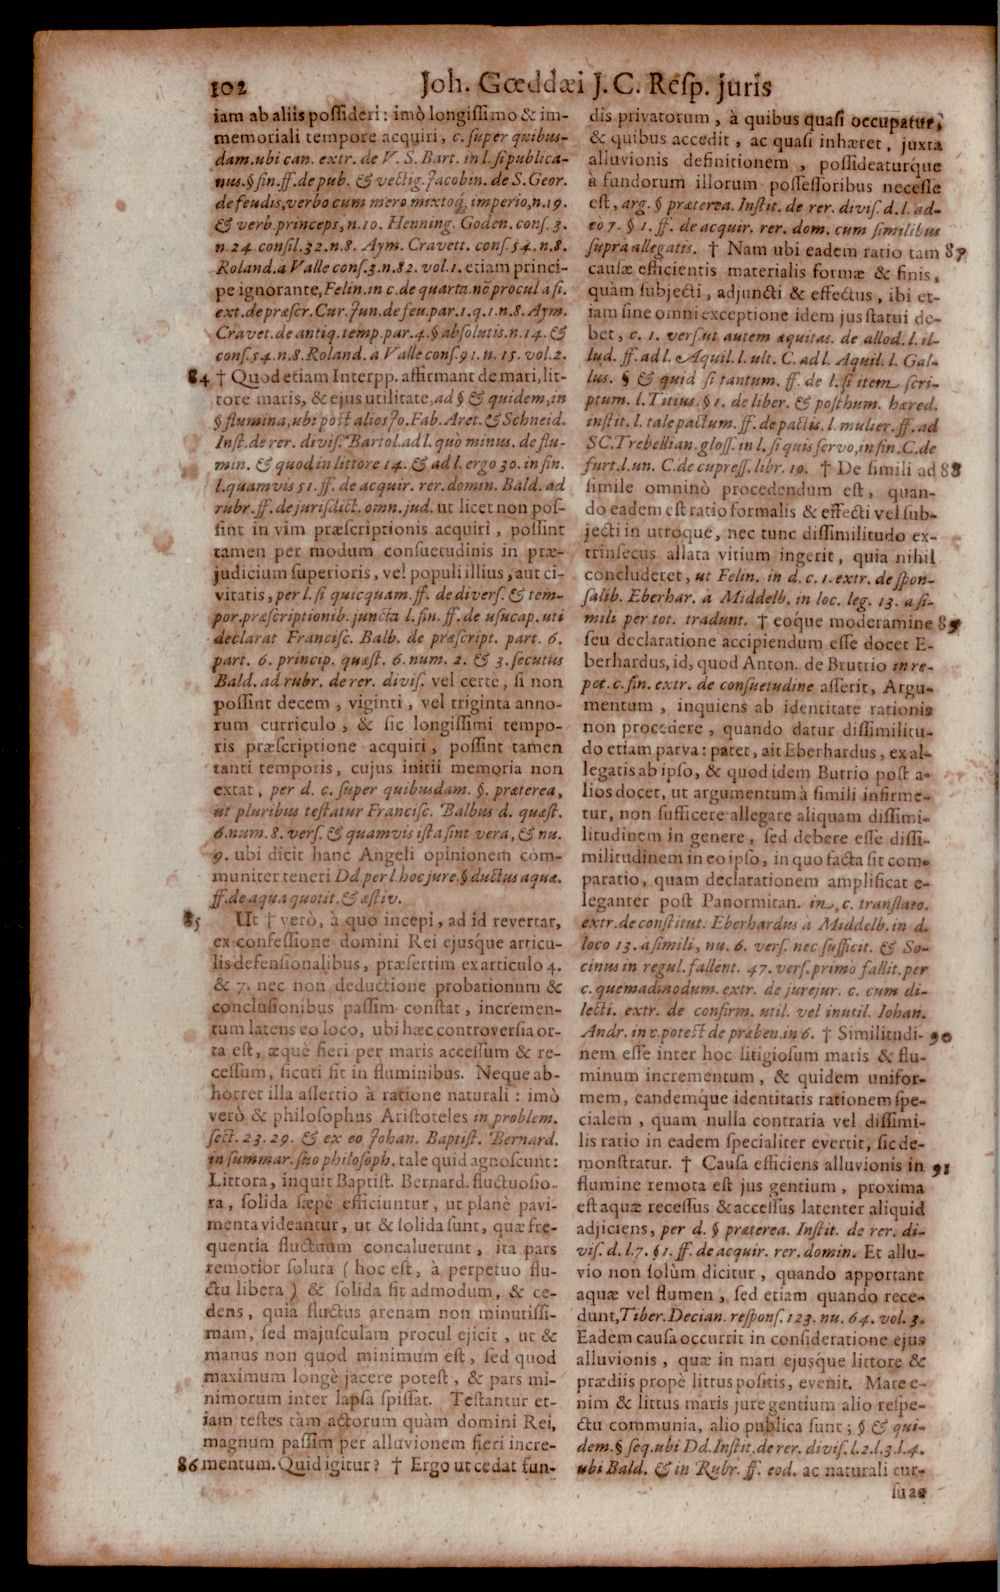 102 Joh. Gœddæi J. C. Resp. juris
iam ab aliis possideri: imò longissimo & im-
memoriali tempore acquiri, c. super quibus-
dam. ubi can. extr. de V. S. Bart. in l. si publica-
nus. § fin. ff. de pub. & vectig. Jacobin. de S. Geor.
de feudis, verbo cum mero mixtoq; imperio, n. 19.
& verb. princeps, n. 10. Henning. Goden. cons. 3.
n. 24. consil. 32. n. 8. Aym. Cravett. cons. 54. n. 8.
Roland. à Valle cons. 3. n. 82. vol. 1. etiam princi-
pe ignorante, Felin. in c. de quarta. nō procul à fi.
ext. de præscr. Cur. Jun. de feu. par. 1. q. 1. n. 8. Aym.
Cravet. de antiq. temp. par. 4. § absolutis. n. 14. &
cons. 54. n. 8. Roland. à Valle cons. 91. n. 15. vol. 2.
84 † Quod etiam Interpp. affirmant de mari, lit-
tore maris, & ejus utilitate, ad § & quidem, in
§ flumina, ubi post alios Jo. Fab. Aret. & Schneid.
Inst. de rer. divis. Bartol. ad l. quo minus. de flu-
min. & quod in littore 14. & ad l. ergo 30. in fin.
l. quamvis 51. ff. de acquir. rer. domin. Bald. ad
rubr. ff. de jurisdict. omn. jud. ut licet non pos-
sint in vim præscriptionis acquiri, possint
tamen per modum consuetudinis in præ-
judicium superioris, vel populi illius, aut ci-
vitatis, per l. si quicquam. ff. de divers. & tem-
por. præscriptionib. juncta l. fin. ff. de usucap. uti
declarat Francisc. Balb. de præscript. part. 6.
part. 6. princip. quæst. 6. num. 2. & 3. secutus
Bald. ad rubr. de rer. divis. vel certè, si non
possint decem, viginti, vel triginta anno-
rum curriculo, & sic longissimi tempo-
ris præscriptione acquiri, possint tamen
tanti temporis, cujus initii memoria non
extat, per d. c. super quibusdam. §. præterea,
ut pluribus testatur Francisc. Balbus d. quæst.
6. num. 8. vers. & quamvis ista sint vera, & nu.
9. ubi dicit hanc Angeli opinionem com-
muniter teneri Dd per l. hoc jure. § ductus aquæ.
ff. de aqua quotit. & æstiv.
85 Ut † verò, à quo incepi, ad id revertar,
ex confessione domini Rei ejusque articu-
lis defensionalibus, præsertim ex articulo 4.
& 7. nec non deductione probationum &
conclusionibus passim constat, incremen-
tum latens eo loco, ubi hæc controversia or-
ta est, æquè fieri per maris accessum & re-
cessum, sicuti fit in fluminibus. Neque ab-
horret illa assertio à ratione naturali: imò
verò & philosophus Aristoteles in problem.
sect. 23. 29. & ex eo Johan. Baptist. Bernard.
in summar. suo philosoph. tale quid agnoscunt:
Littora, inquit Baptist. Bernard. fluctuosio-
ra, solida sæpe efficiuntur, ut planè pavi-
menta videantur, ut & solida sunt, quæ fre-
quentia fluctuum concaluerunt, ita pars
remotior soluta (hoc est, à perpetuo flu-
ctu libera) & solida sit admodum, & ce-
dens, quia fluctus arenam non minutissi-
mam, sed majusculam procul ejicit, ut &
manus non quod minimum est, sed quod
maximum longè jacere potest, & pars mi-
nimorum inter lapsa spissat. Testantur et-
iam testes tàm actorum quàm domini Rei,
magnum passim per alluvionem fieri incre-
86 mentum. Quid igitur? † Ergo ut cedat fun-
dis privatorum, à quibus quasi occupatur,
& quibus accedit, ac quasi inhæret, juxta
alluvionis definitionem, possideaturque
à fundorum illorum possessoribus necesse
est, arg. § præterea. Instit. de rer. divis. d. l. ad-
eò 7. § 1. ff. de acquir. rer. dom. cum similibus
supra allegatis. † Nam ubi eadem ratio tam 87
causæ efficientis materialis formæ & finis,
quàm subjecti, adjuncti & effectus, ibi et-
iam sine omni exceptione idem jus statui de-
bet, c. 1. vers. ut autem æquitas. de allod. l. il-
lud. ff. ad l. Aquil. l. ult. C. ad l. Aquil. l. Gal-
lus. § & quid si tantum. ff. de l. si item scri-
ptum. l. Titius. § 1. de liber. & posthum. hæred.
instit. l. tale pactum. ff. de pactis. l. mulier. ff. ad
SC. Trebellian. gloss. in l. si quis servo, in fin. C. de
furt. l. un. C. de cupress. libr. 10. † De simili ad 88
simile omninò procedendum est, quan-
do eadem est ratio formalis & effecti vel sub-
jecti in utroque, nec tunc dissimilitudo ex-
trinsecus allata vitium ingerit, quia nihil
concluderet, ut Felin. in d. c. 1. extr. de spon-
salib. Eberhar. à Middelb. in loc. leg. 13. a si-
mili per tot. tradunt. † eoque moderamine 89
seu declaratione accipiendum esse docet E-
berhardus, id, quod Anton. de Bruttio in re-
pet. c. fin. extr. de consuetudine asserit, Argu-
mentum, inquiens ab identitate rationis
non procedere, quando datur dissimilitu-
do etiam parva: patet, ait Eberhardus, ex al-
legatis ab ipso, & quod idem Butrio post a-
lios docet, ut argumentum à simili infirme-
tur, non sufficere allegare aliquam dissimi-
litudinem in genere, sed debere esse dissi-
militudinem in eo ipso, in quo facta sit com-
paratio, quam declarationem amplificat e-
leganter post Panormitan. in c. translato.
extr. de constitut. Eberhardus à Middelb. in d.
loco 13. a simili, nu. 6. vers. nec sufficit. & So-
cinus in regul. fallent. 47. vers. primò fallit. per
c. quemadmodum. extr. de jurejur. c. cum di-
lecti. extr. de confirm. util. vel inutil. Iohan.
Andr. in c. potest de præben. in 6. † Similitudi- 90
nem esse inter hoc litigiosum maris & flu-
minum incrementum, & quidem unifor-
mem, eandemque identitatis rationem spe-
cialem, quam nulla contraria vel dissimi-
lis ratio in eadem specialiter evertit, sic de-
monstratur. † Causa efficiens alluvionis in 91
flumine remota est jus gentium, proxima
est aquæ recessus & accessus latenter aliquid
adjiciens, per d. § præterea. Instit. de rer. di-
vis. d. l. 7. § 1. ff. de acquir. rer. domin. Et allu-
vio non solùm dicitur, quando apportant
aquæ vel flumen, sed etiam quando rece-
dunt, Tiber. Decian. respons. 123. nu. 64. vol. 3.
Eadem causa occurrit in consideratione ejus
alluvionis, quæ in mari ejusque littore &
prædiis propè littus positis, evenit. Mare e-
nim & littus maris jure gentium alio respe-
ctu communia, alio publica sunt; § & qui-
dem. § seq. ubi Dd. Instit. de rer. divis. l. 2. l. 3. l. 4.
ubi Bald. & in Rubr. ff. eod. ac naturali cur-
su aq